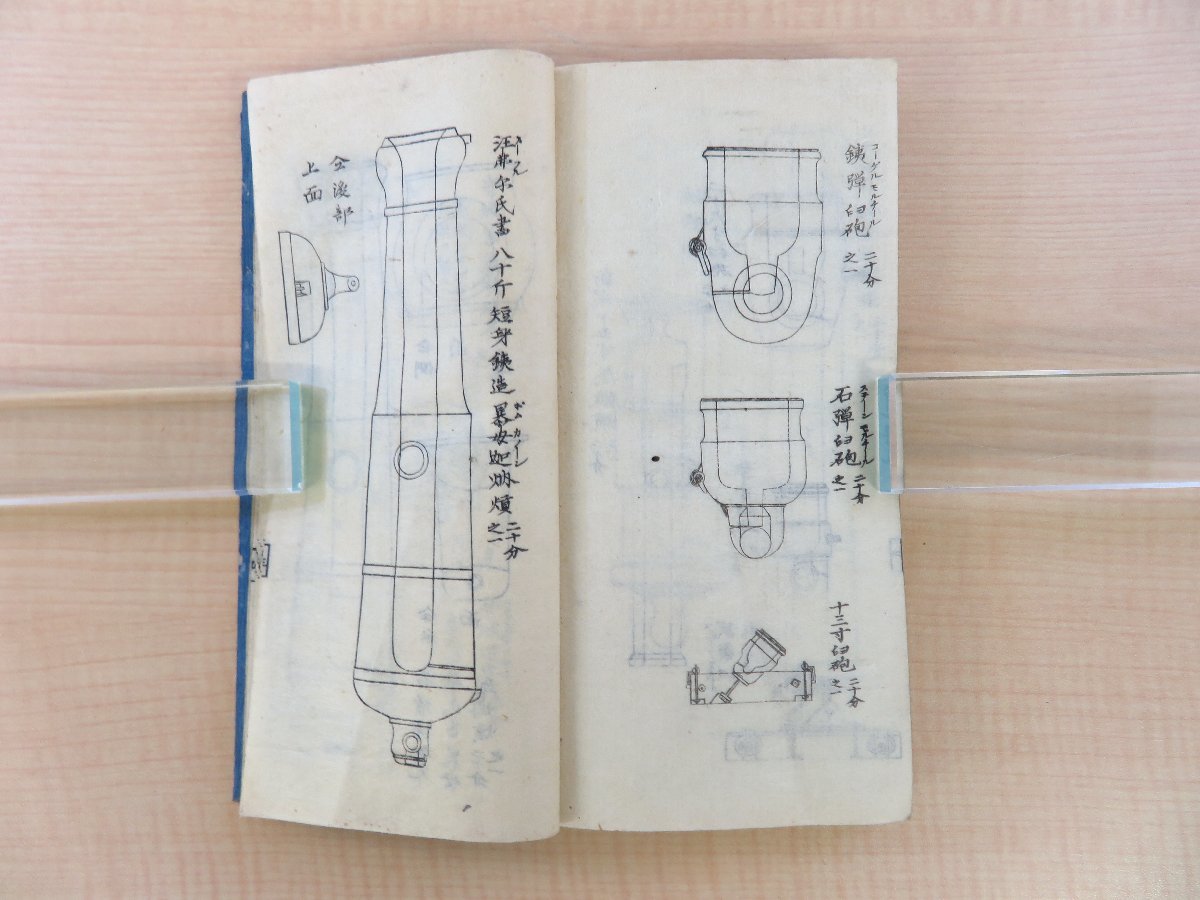 コーゲルモルチール
鉄弾臼砲 二十分之一
ステーンモルチール
石弾臼砲 二十分之一
十三寸臼砲 二十分之一
氏書八十斤短身鉄造
ボムカノーン
二十分之一
仝後部
上面